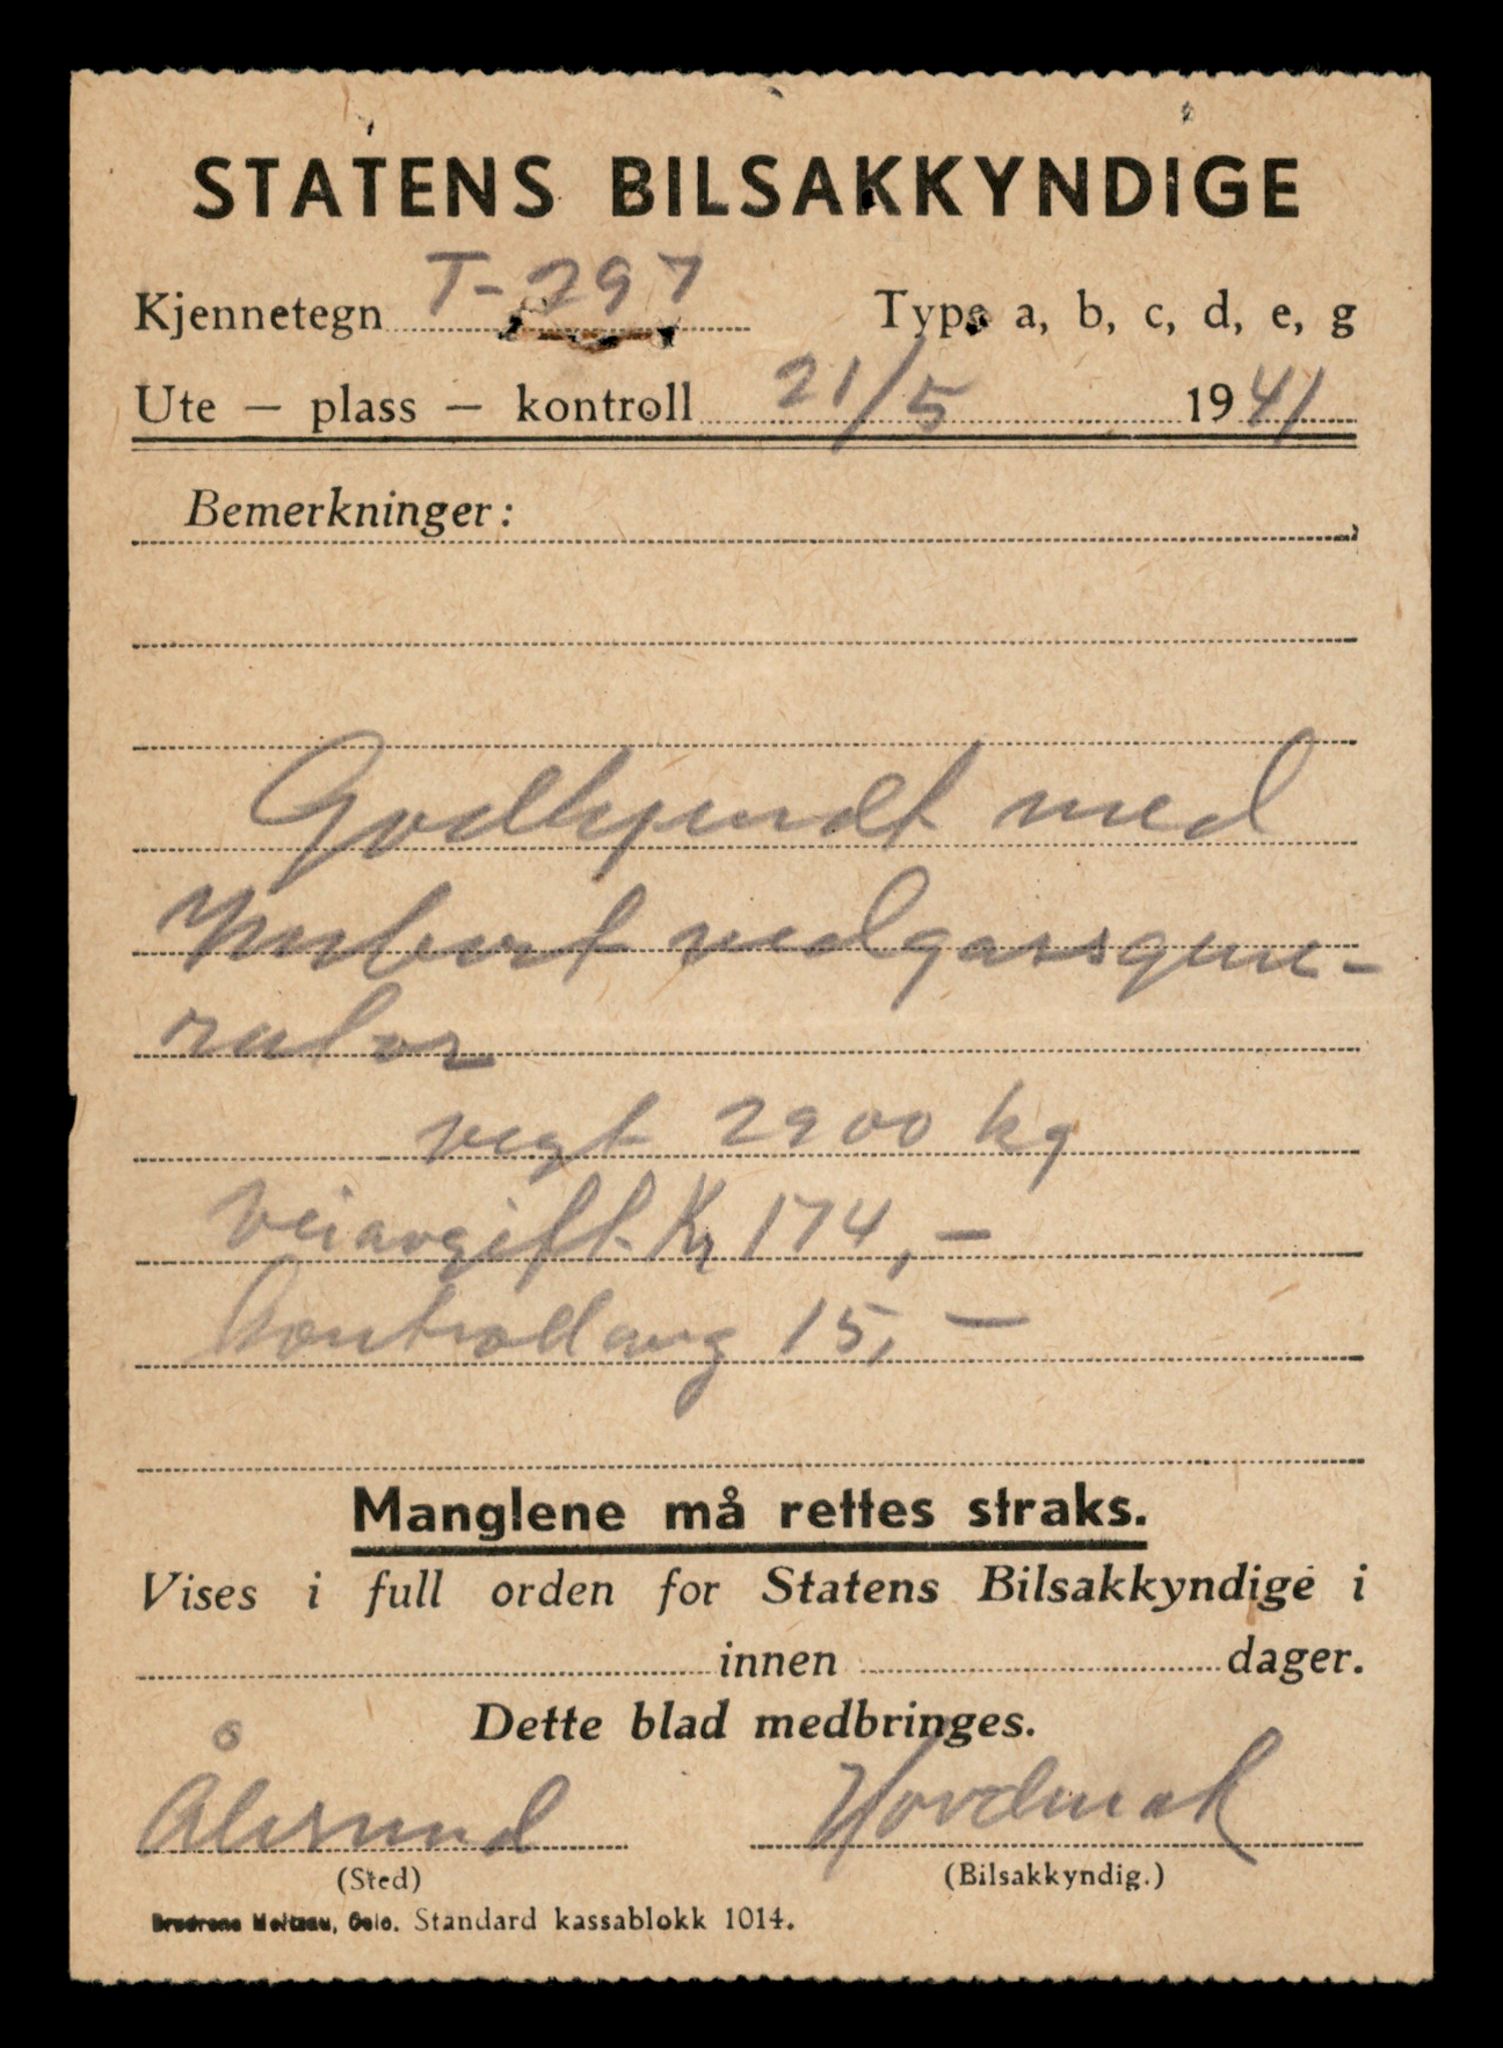 STATENS BILSAKKYNDIGE
Kjennetegn T-297 Type a, b, c, d, e, g
Ute — plass — kontroll 21/5 1941
Bemerkninger:
Godkjendt med
Imbert vedgassgene-
rator
vegt 2900 kg
Veiavgift Kr 174,-
Kontrollavg 15,-
Manglene må rettes straks.
Vises i full orden for Statens Bilsakkyndige i
innen dager.
Dette blad medbringes.
Ålesund
(Sted) (Bilsakkyndig.)
Oslo. Standard kassablokk 1014.